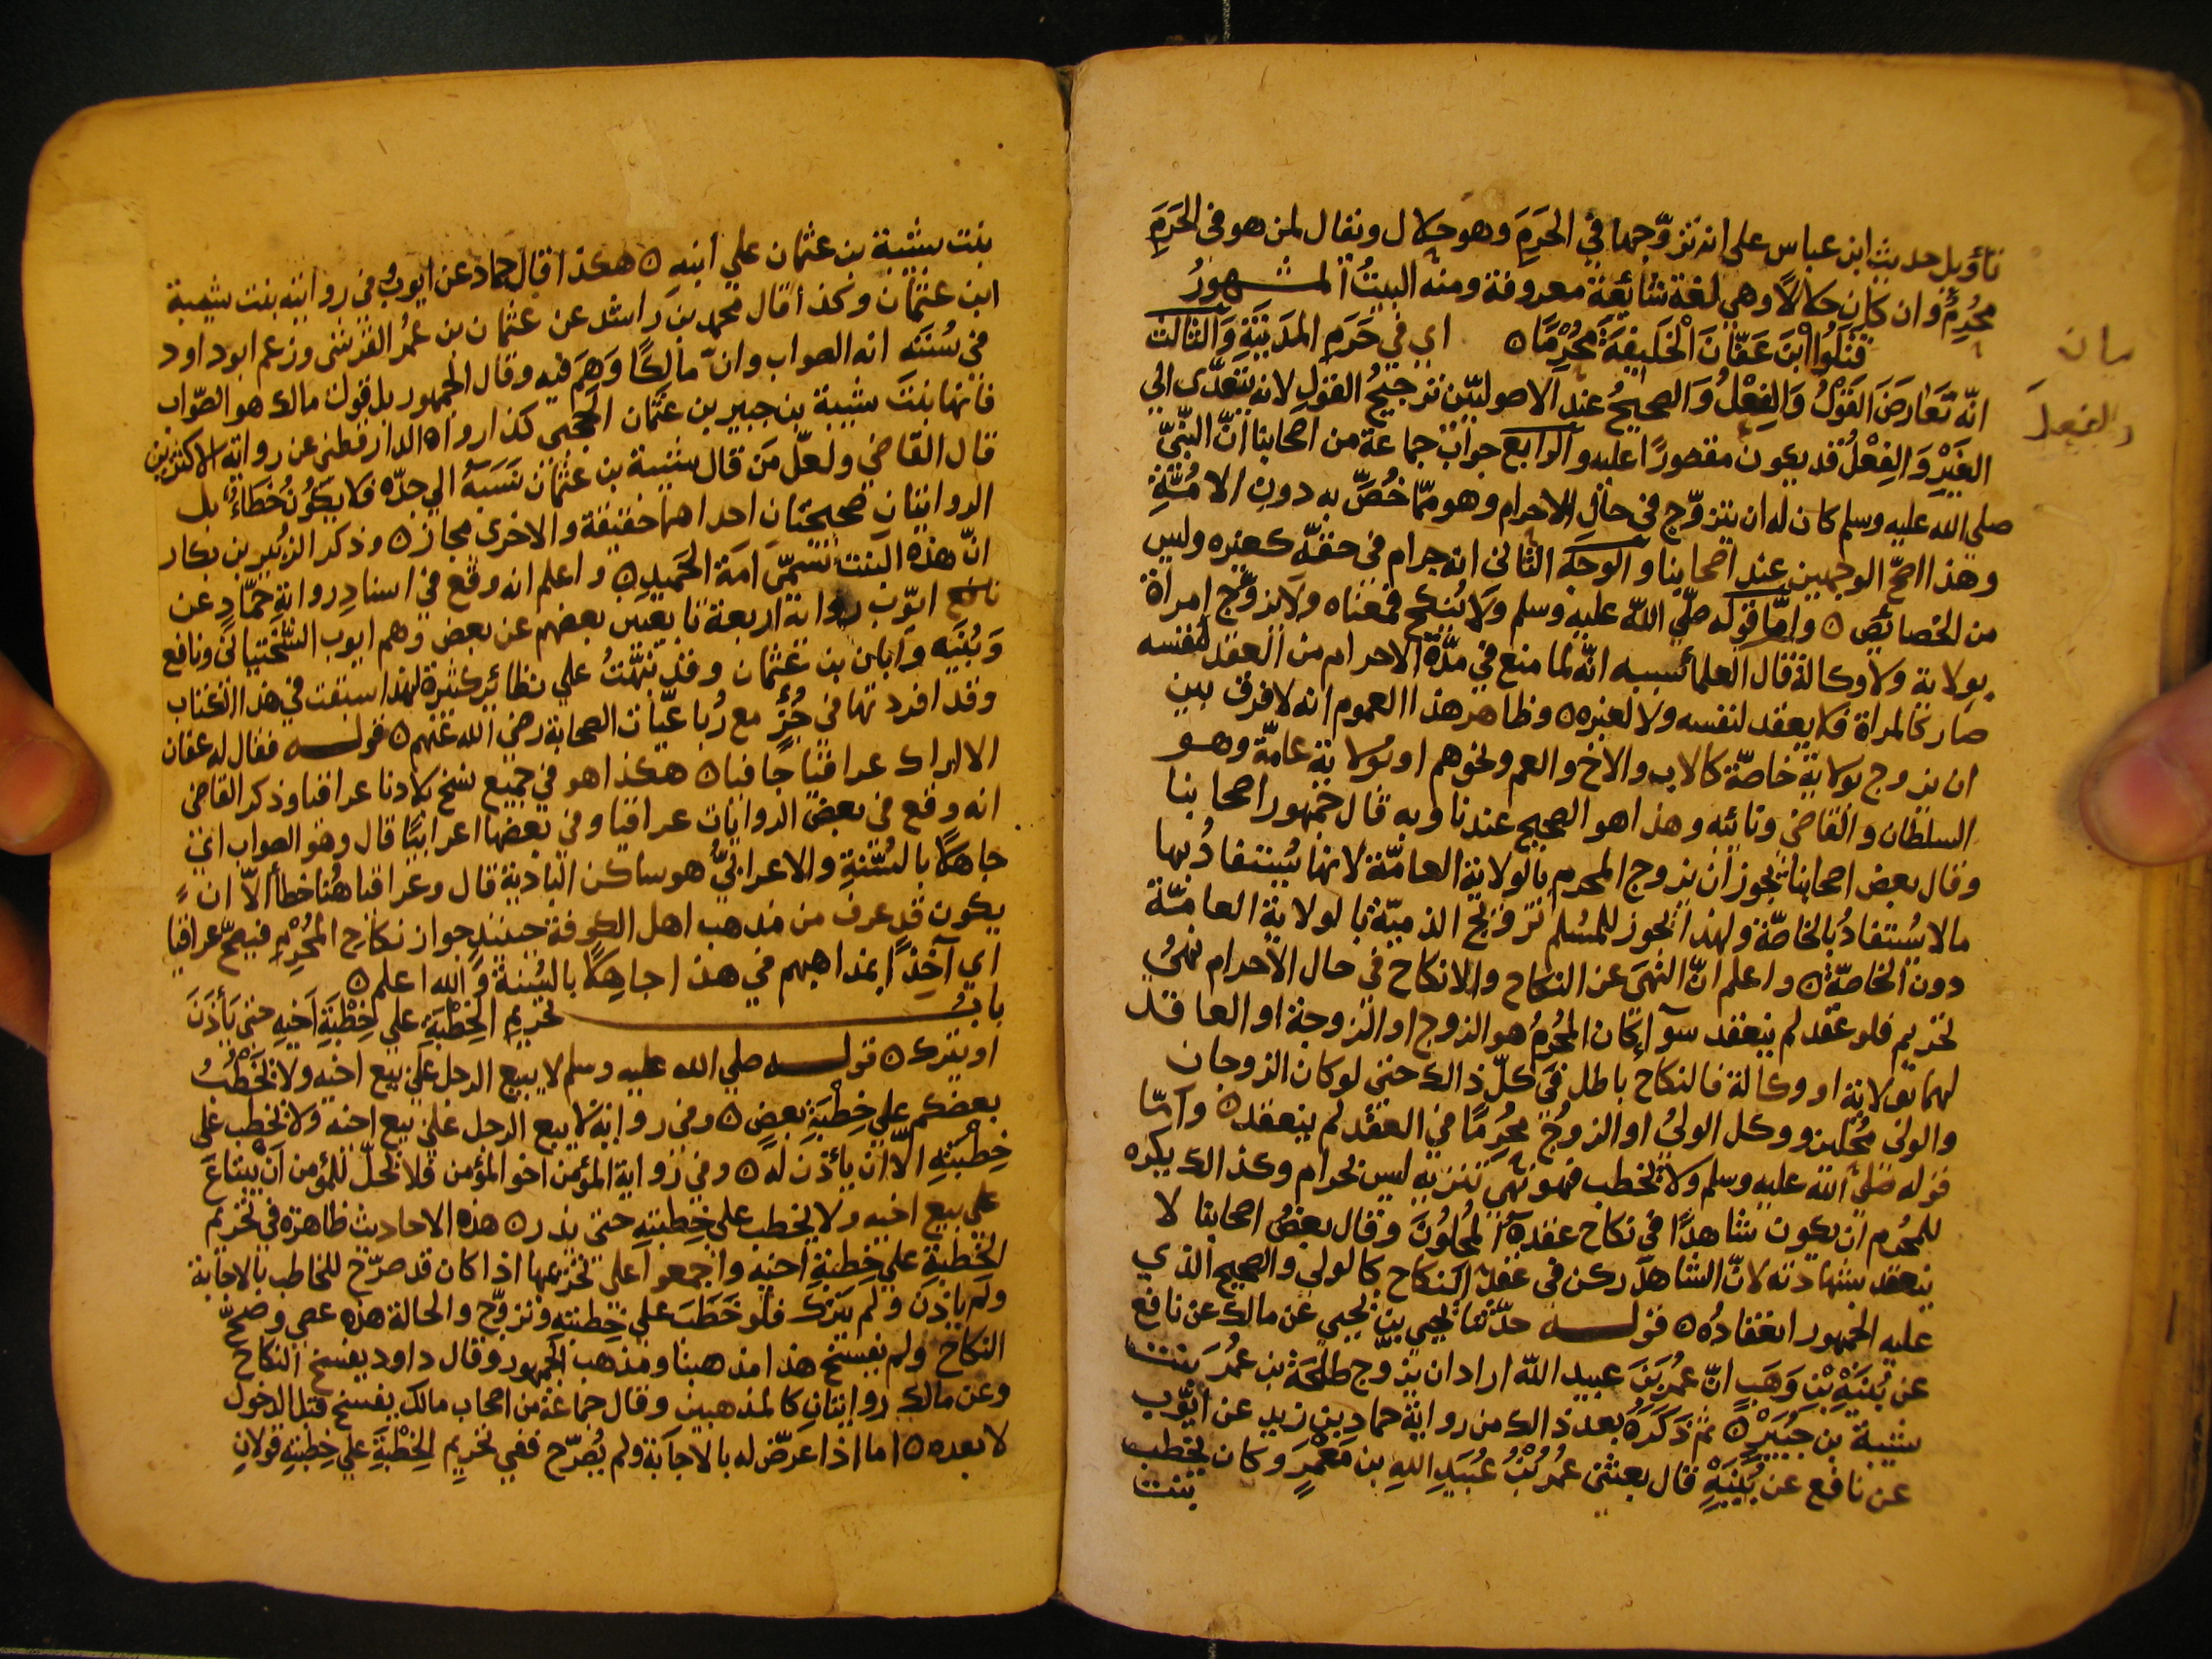 تأويل حديث ابن عباس على انه تزوّجها في الحَرَمِ وهو حلال ويقال لمن هو في الحَرَمِ
مُحْرِمٌ وان كان حلالًا وهي لغة شائعة معروفة ومنه البيتُ المشهورُ
قَتَلُوا ابْنَ عَفّانَ الْخَلِيفَةَ مُحْرِمًا ه اي في حَرَمِ المَدِينَةِ وَالثالث
انّه تَعَارَضَ القَوْلُ وَالفِعْلُ وَالصحيحُ عند الاصوليّين ترجيحُ القول لانه يتعدّى الي
الغَيْرِ وَالفِعْلُ قد يكون مقصورًا عليه والرابع جوابُ جماعة من اصحابنا انّ النبيّ
صلي الله عليه وسلم كان له ان يتزوّج في حال الاحرام وهو ممّا خُصَّ به دون الامّةِ
وهذا اصحّ الوجهين عند اصحابنا والوجه الثاني انه حرام في حقّه كغيره وليس
من الخصائص ه وامّا قوله صلّي اللّه عليه وسلم ولا يُنكح فمعناه ولا يزوّج امراة
بولاية ولا وكالة قال العلما سببه انّه لما منع في مدّة الاحرام من العقد لنفسه
صار كالمراة فلا يعقد لنفسه ولا لغيره ه وظاهر هذا العموم انه لا فرق بين
ان يزوج بولاية خاصّة كالاب والاخ والعم ونحوهم او بولاية عامّة وهو
السلطان والقاضي ونائبه وهذا هو الصحيح عندنا وبه قال جمهور اصحابنا
وقال بعض اصحابنا يجوز ان يزوج المحرم بالولاية العامّة لانها يُستفادُ بها
مالا يُستفادُ بالخاصّة ولهذا يجوز للمُسلم تزويج الذميّة بالولاية العامّة
دون الخاصّة ه واعلم انّ النهيَ عن النكاح والانكاح في حال الاحرام نهيُ
تحريم فلو عقد لم ينعقد سوآ كان المُحْرِمُ هو الزوج او الزوجة او العاقد
لهما بولاية او وكالة فالنكاح باطل في كلّ ذالك حتى لو كان الزوجان
والولي مُحِلّين ووكل الوليُ او الزوجُ مُحْرِمًا في العقد لم ينعقد ه وامّا
قوله صلي الله عليه وسلم ولا يخطب فهو نهي تنزيه ليس بحرام وكذالك يكره
للمُحْرِم ان يكون شاهدًا في نكاح عقده المُحِلّونَ وقال بعضُ اصحابنا لا
ينعقد بشهادته لانّ الشاهد ركن في عقد النكاح كالولي والصحيح الذي
عليه الجمهور انعقادُه ه قوله حدّثنا يحيى بن يحيى عن مالك عن نافع
عن نُبَيْهِ بْنِ وَهَبٍ انّ عُمَرَ بْنَ عبيد اللّه اراد ان يزوّج طلحَةَ بن عُمَرَ بنت
شيبة بن جُبَيْرٍ ه ثم ذَكَرَهُ بعد ذالك من رواية حماد بن زيد عن ايّوب
عن نافع عن نُبَيْهٍ قال بعثني عُمَرُ بْنُ عُبَيدِ اللهِ بن مَعْمَرٍ وكان يخطب
بنت
بيان
والفعل
بنت شيبة بن عثمان علي ابنه ه هكذا قال حماد عن ايوبُ في روايته بنت شيبة
ابن عثمان وكذا قال محمد بن راشد عن عثمان بن عُمَر القرشى وزعم ابو داود
في سُنَنِه انه الصواب وانّ مالكًا وَهِمَ فيه وقال الجمهور بل قول مالك هو الصّواب
فانها بنتَ شيبة بن جبير بن عثمان الحَجَبي كذا رواه الدارقطني عن رواية الاكثرين
قال القاضي ولعلّ مَن قال شيبة بن عُثمان نَسَبَهُ الي جدّه فلا يكُونُ خَطَاءً بل
الروايتان صحيحتان احداهما حقيقة والاخرى مجاز ه وذكر الزُبَير بن بكار
انّ هذه البنت تسمّى امَةَ الحَميد ه واعلم انه وقع في اسنادِ رواية حمّادٍ عن
ايّوب رواية اربعة تابعيين بعضهم عن بعض وهم ايوب السّختياني ونافع
وَنُبَيْه وَابان بن عثمان وقد نبّهتُ علي نظائِر كثيرة لهذا سبقت في هذا الكتاب
وقد افردتها في جُزْءٍ مع رُباعيّات الصحابة رضي الله عنهم ه قوله فقال له عفان
الا اراك عراقيًا جافيا ه هكذا هو في جميع نسخ بلادنا عراقيا وذكر القاضي
انه وقع في بعض الروايات عراقيا وفي بعضها اعرابيًا قال وهو الصواب اي
جاهلًا بالسُنّةِ والاعرابيُّ هو ساكن البادية قال وعراقيا هُنا خطأ الّا ان
يكون قد عرف من مذهب اهل الكوفة حينئذٍ جواز نكاح المُحْرِمِ فيصحّ عراقيا
اي آخِذًا بمذاهبهم في هذا جاهِلًا بالسُنة وَالله اعلم ه
بابُ تحريمِ الخِطْبَةِ علي خِطْبَةِ اَخيهِ حتى يَأذَنَ
او يترك ه قوله صلي الله عليه وسلم لا يبيع الرجل علي بيع اخيه ولا يَخْطُبُ
بعضكم علي خِطْبَةِ بعضٍ ه وفي رواية لا يبيع الرجل علي بيع اخيه ولا يخطب علي
خِطْبَتِهِ الّا ان يأذن له ه وفي رواية المؤمن اخو المؤمن فلا يحلّ للمؤمن اَنْ يبتاعَ
علي بيع اخيه ولا يخطب علي خِطبَتِهِ حتى يذر ه هذه الاحاديث ظاهرة في تحريم
الخِطبَةِ علي خِطبَةِ اخيه واجمعوا علي تحريمها اذا كان قد صرّح للخاطب بالاجابة
ولم ياذن ولم يَترُك فلو خَطَبَ علي خِطبتهِ وتزوّج والحالة هذه عصي وصحّ
النكاح ولم يفسخ هذا مذهبنا ومذهب الجمهور وقال داود يفسخ النكاح
وعن مالك روايتان كالمذهبين وقال جماعة من اصحاب مالك يفسخ قبل الدخول
لا بعده ه اما اذا عرّض له بالاجابة ولم يُصَرّح ففي تحريم الخِطْبَةِ علي خِطبتهِ قولانِ